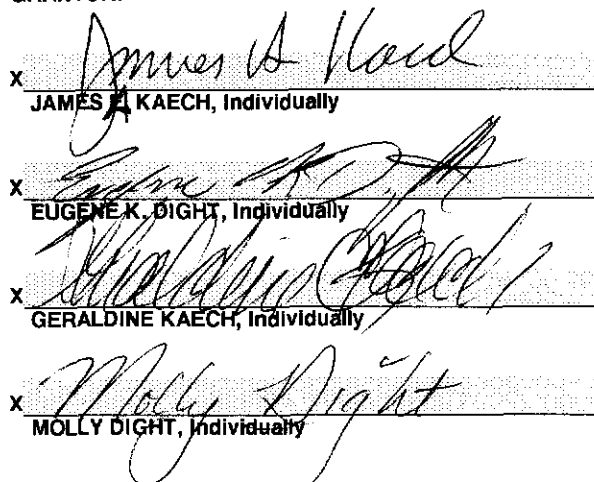 GRANTOR:
X James A Kaech
JAMES A KAECH, Individually
X Eugene K. Dight
EUGENE K. DIGHT, Individually
X Geraldine Kaech
GERALDINE KAECH, Individually
X Molly Dight
MOLLY DIGHT, Individually